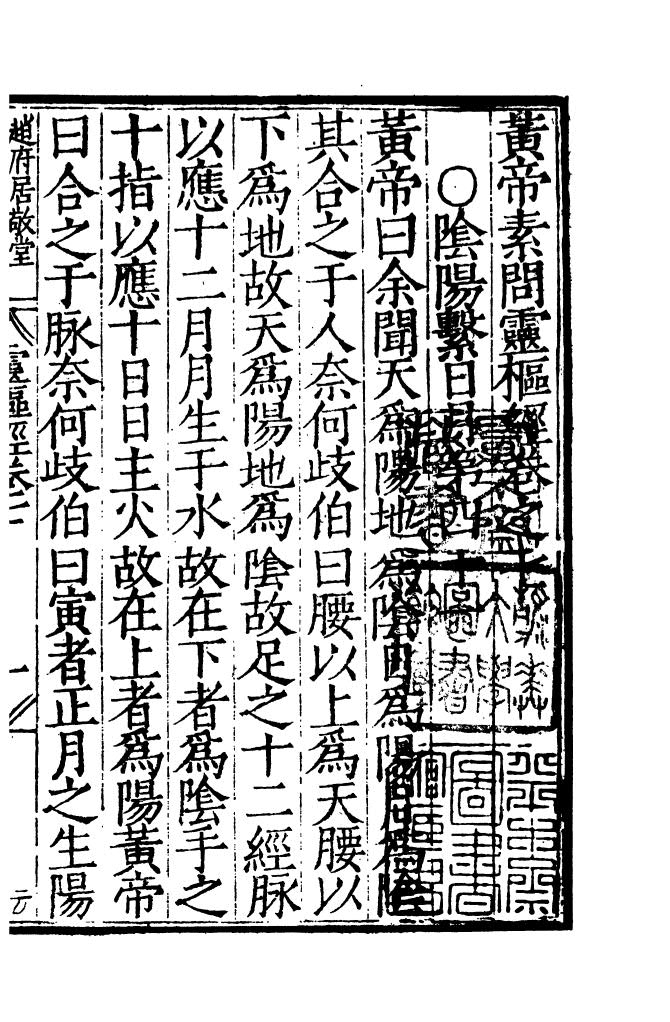 黃帝素問靈樞經卷之十
○陰陽繫日月第四十一
黃帝曰余聞天爲陽地爲陰日爲陽月爲陰
其合之于人奈何歧伯曰腰以上爲天腰以
下爲地故天爲陽地爲陰故足之十二經脉
以應十二月月生于水故在下者爲陰手之
十指以應十日日主火故在上者爲陽黃帝
曰合之于脉奈何歧伯曰寅者正月之生陽
趙府居敬堂
靈樞經卷十